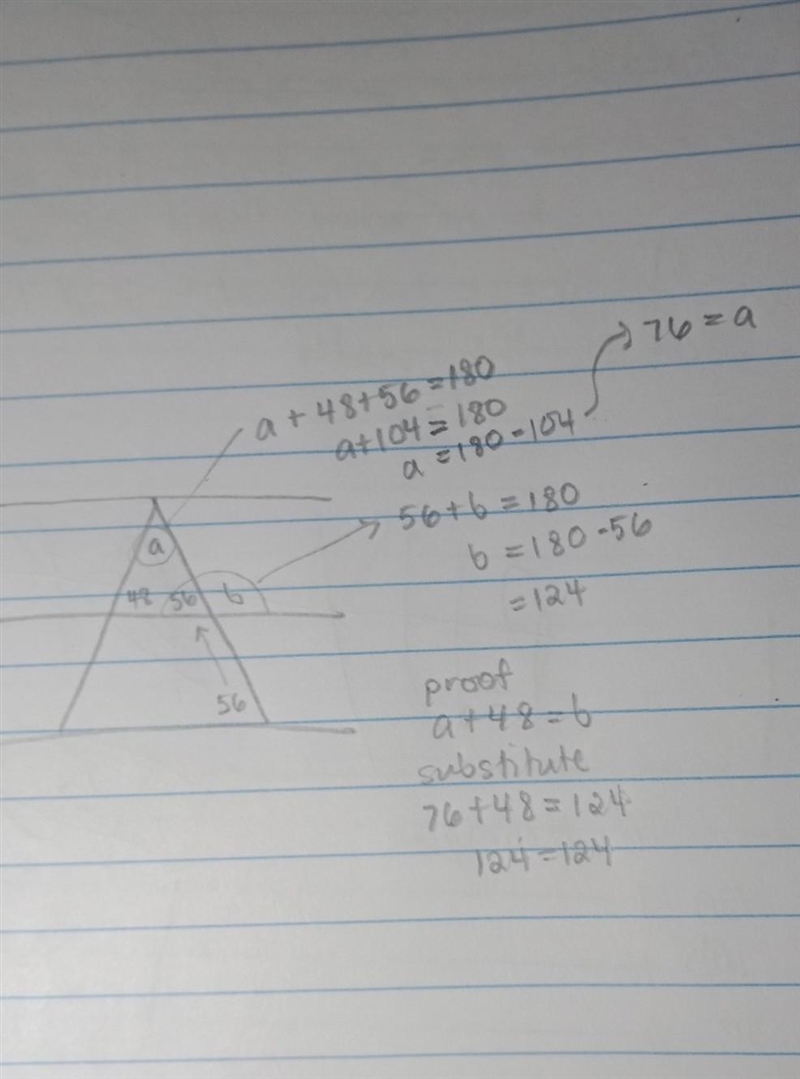 76 = a
a + 48 + 56 = 180
a + 104 = 180
a = 180 - 104
56 + b = 180
b = 180 - 56
= 124
a
48 56 b
56
proof
a + 48 = b
substitute
76 + 48 = 124
124 = 124